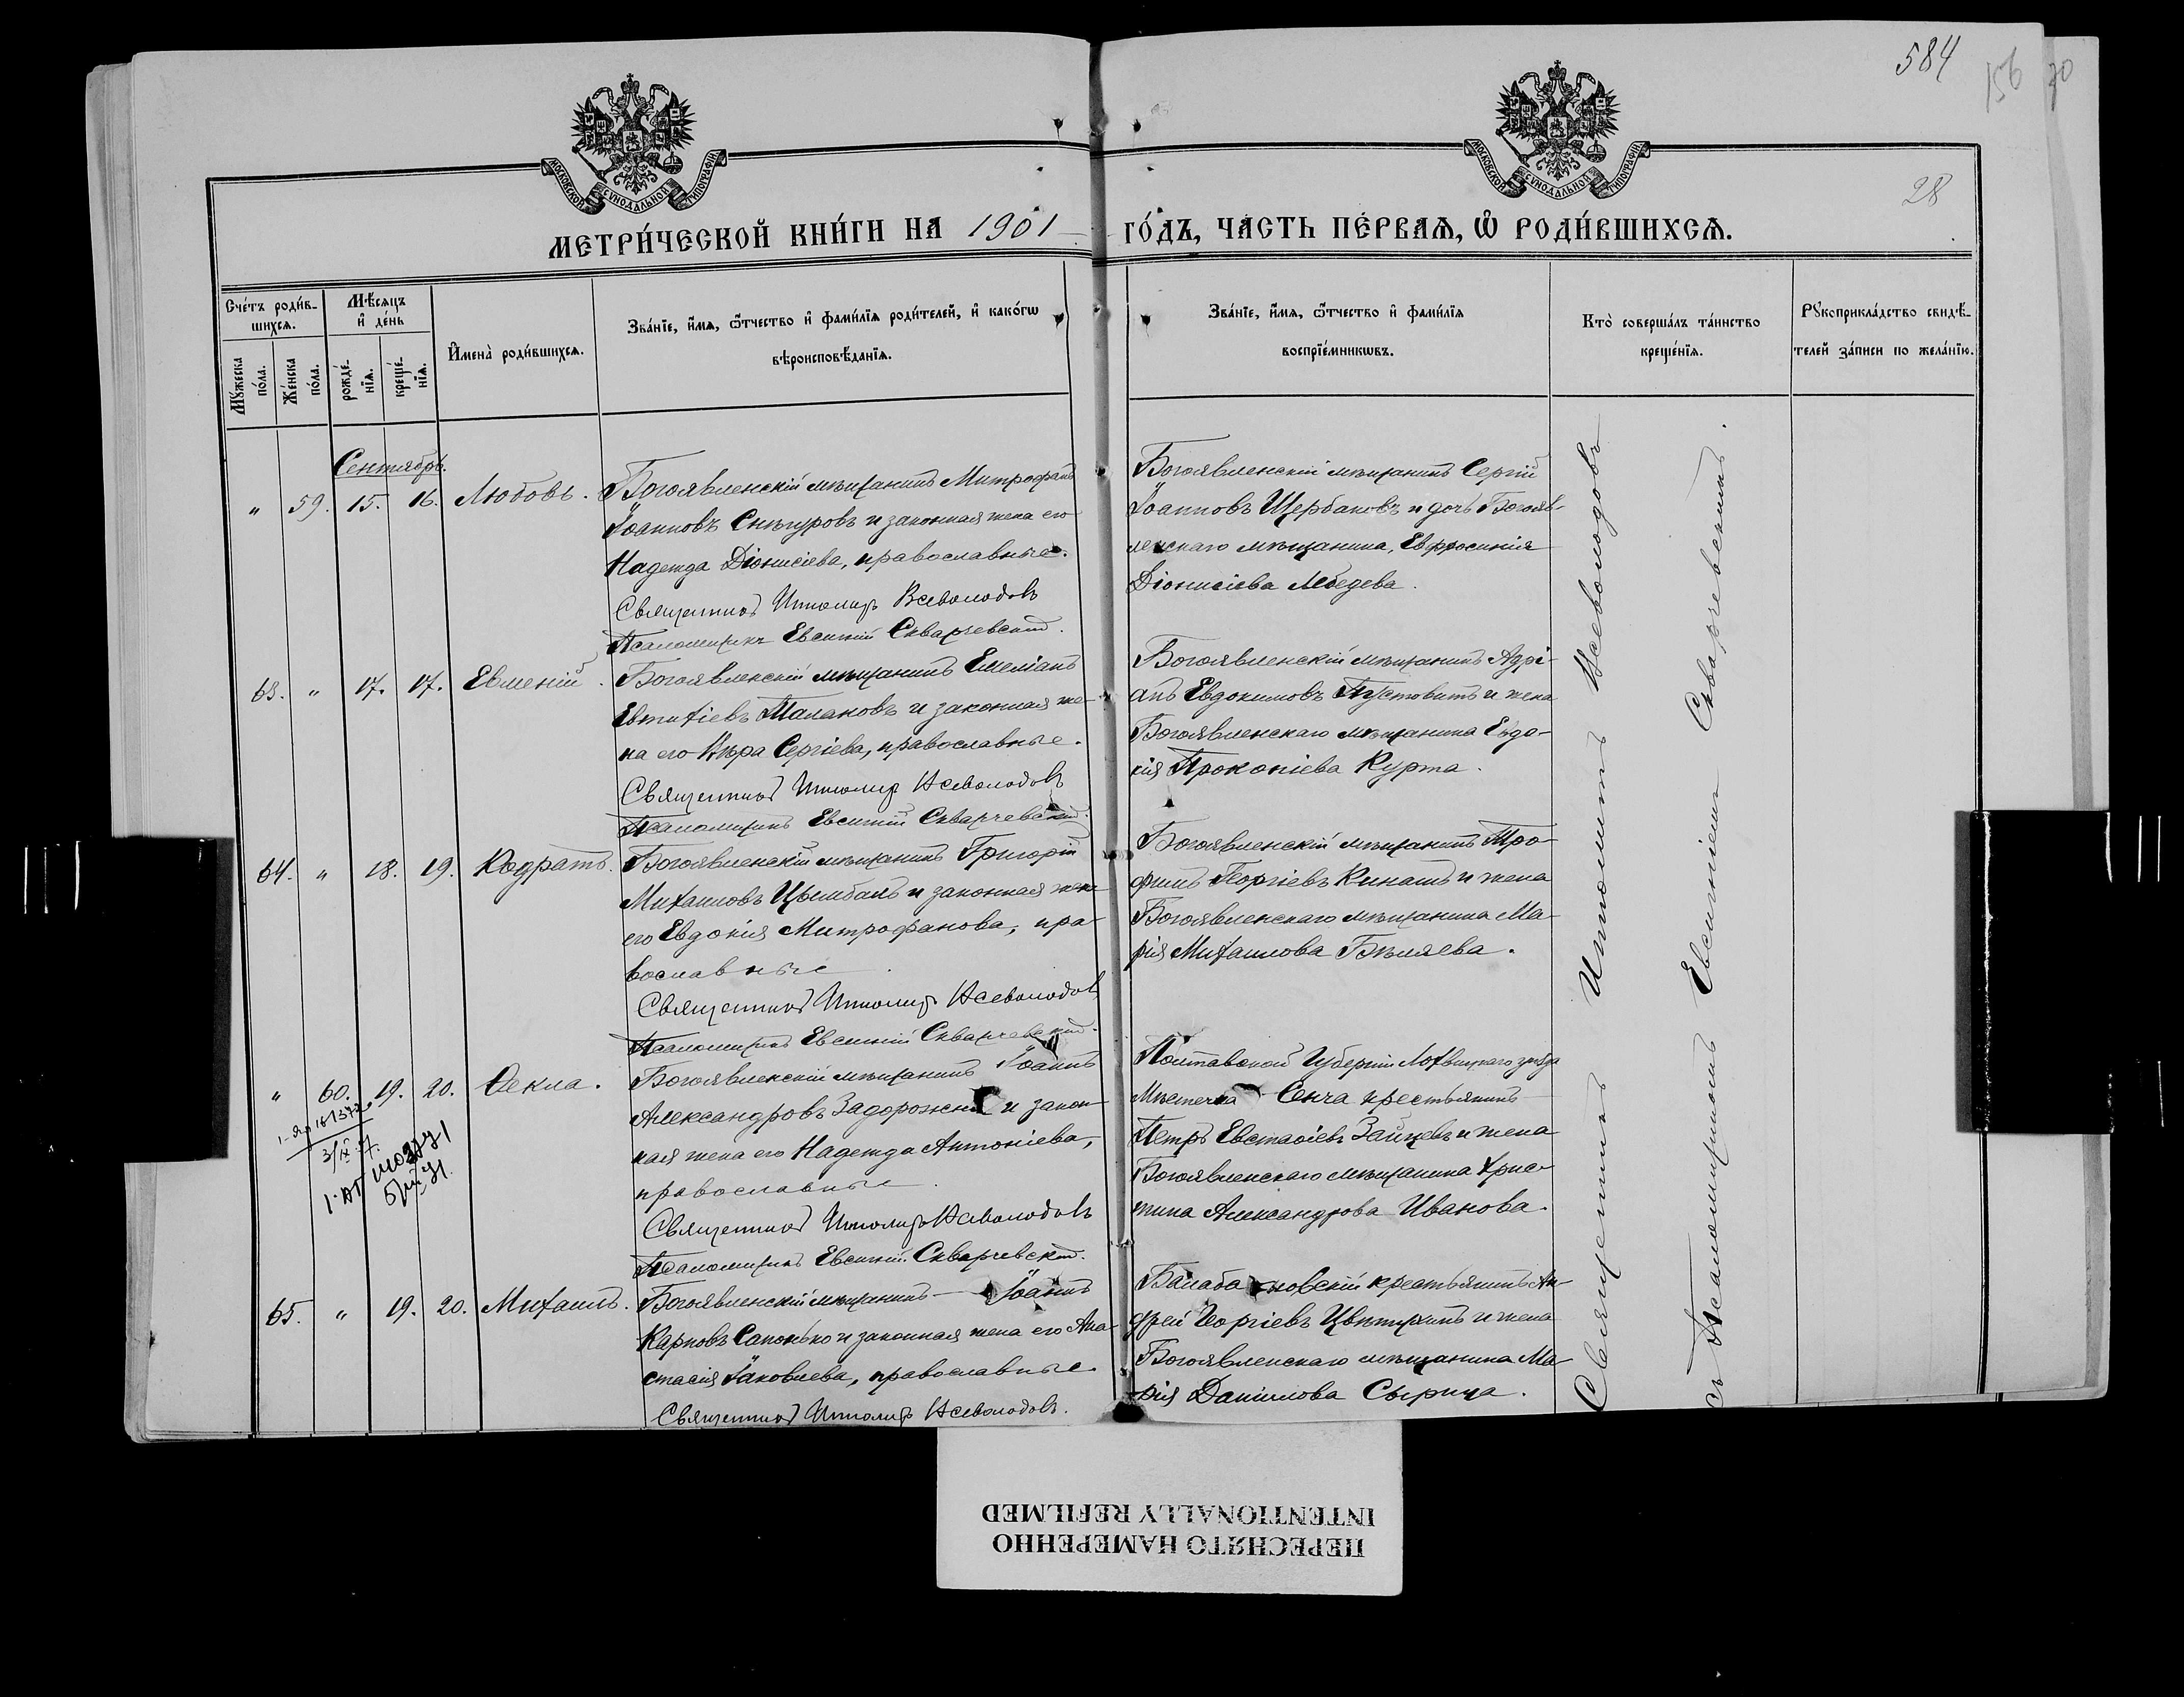 584
156
70
28
МОСКОВСКОЙ СѴНОДАЛЬНОЙ ТИПОГРАФІИ
МОСКОВСКОЙ СѴНОДАЛЬНОЙ ТИПОГРАФІИ
МЕТРИ́ЧЕСКОЙ КНИ́ГИ НА 1901 ГО́ДЪ, ЧА́СТЬ ПЕ́РВАѦ, Ѡ҆ РОДИ́ВШИХСѦ.
Сче́тъ роди́в-
шихсѧ.
Мꙋ́жеска
по́ла.
Же́нска
по́ла.
Мѣ́сѧцъ
и҆ де́нь
рожде́-
нїѧ.
креще́-
нїѧ.
И҆мена̀ роди́вшихсѧ.
Зва́нїе, и҆́мѧ, ѻ҆́тчество и҆ фами́лїѧ роди́телей, и҆ како́гѡ
вѣроисповѣ́данїѧ.
Зва́нїе, и҆́мѧ, ѻ҆́тчество и҆ фами́лїѧ
воспрїе́мникѡвъ.
Кто̀ соверша́лъ та́инство
креще́нїѧ.
Рꙋкоприкла́дство свидѣ́-
телей за́писи по жела́нїю.
Сентябрь.
" 59. 15. 16. Любовь.
Богоявленскій мѣщанинъ Митрофанъ
Іоанновъ Снѣгуровъ и законная жена его
Надежда Діонисіева, православные.
Священникъ Ипполитъ Всеволодовъ
Псаломщикъ Евсигній Скварчевскій.
Богоявленскій мѣщанинъ Сергій
Іоанновъ Щербаковъ и дочь Богояв-
ленскаго мѣщанина, Евфросинія
Діонисіева Лебедева.
63. " 17. 17. Евменій.
Богоявленскій мѣщанинъ Емеліанъ
Евтихіевъ Малаховъ и законная же-
на его Вѣра Сергіева, православные.
Священникъ Ипполитъ Всеволодовъ
Псаломщикъ Евсигній Скварчевскій.
Богоявленскій мѣщанинъ Адрі-
анъ Евдокимовъ Пустовитъ и жена
Богоявленскаго мѣщанина Евдо-
кія Прокопіева Курта.
64. " 18. 19. Кодратъ.
Богоявленскій мѣщанинъ Григорій
Михаиловъ Цымбалъ и законная жена
его Евдокія Митрофанова, пра-
вославные.
Священникъ Ипполитъ Всеволодовъ
Псаломщикъ Евсигній Скварчевскій.
Богоявленскій мѣщанинъ Тро-
фимъ Георгіевъ Кинашъ и жена
Богоявленскаго мѣщанина Ма-
рія Михаилова Бѣляева.
" 60. 19. 20. Ѳекла.
Богоявленскій мѣщанинъ Іоаннъ
Александровъ Задорожній и закон-
ная жена его Надежда Антоніева,
православные.
Священникъ Ипполитъ Всеволодовъ
Псаломщикъ Евсигній Скварчевскій.
Полтавской Губерніи Лохвицкаго уѣзда
Мѣстечка Сенча крестьянинъ
Петръ Евстаѳіевъ Зайцевъ и жена
Богоявленскаго мѣщанина Хрис-
тина Александрова Иванова.
65. " 19. 20. Михаилъ.
Богоявленскій мѣщанинъ Іоаннъ
Карповъ Сапонько и законная жена его Ана-
стасія Іаковлева, православные.
Священникъ Ипполитъ Всеволодовъ.
Балабановскій крестьянинъ Ан-
дрей Георгіевъ Цвѣтухинъ и жена
Богоявленскаго мѣщанина Ма-
рія Даніилова Сырица.
Священникъ Ипполитъ Всеволодовъ
съ Псаломщикомъ Евсигніемъ Скварчевскимъ.
ПЕРЕСНЯТО НАМЕРЕННО
INTENTIONALLY REFILMED